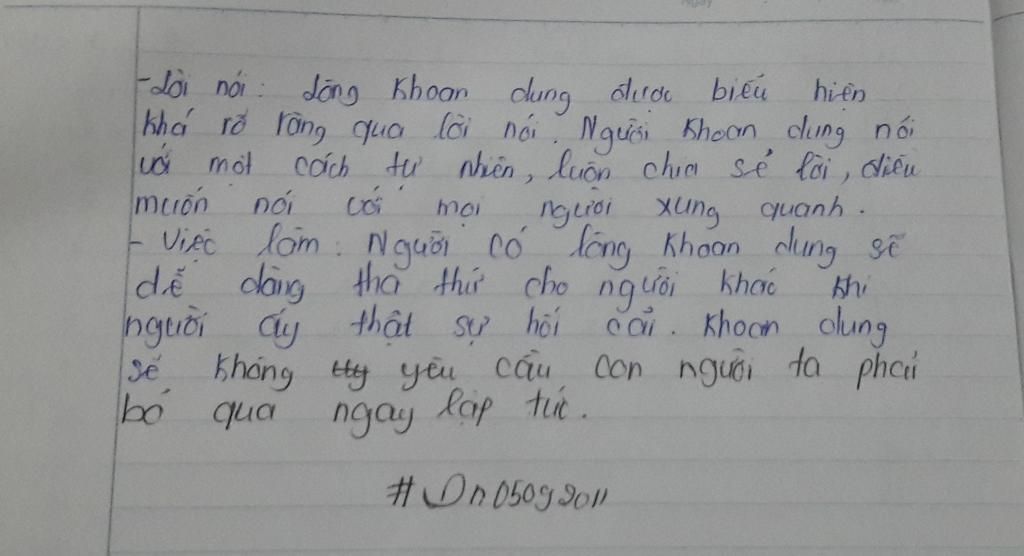 - Lời nói: lòng khoan dung được biểu hiện
khá rõ ràng qua lời nói. Người khoan dung nói
với một cách tự nhiên, luôn chia sẻ lời, điều
muốn nói với mọi người xung quanh.
- Việc làm: Người có lòng khoan dung sẽ
dễ dàng tha thứ cho người khác khi
người ấy thật sự hối cải. Khoan dung
sẽ không yêu cầu con người ta phải
bỏ qua ngay lập tức.
#Dn05092011